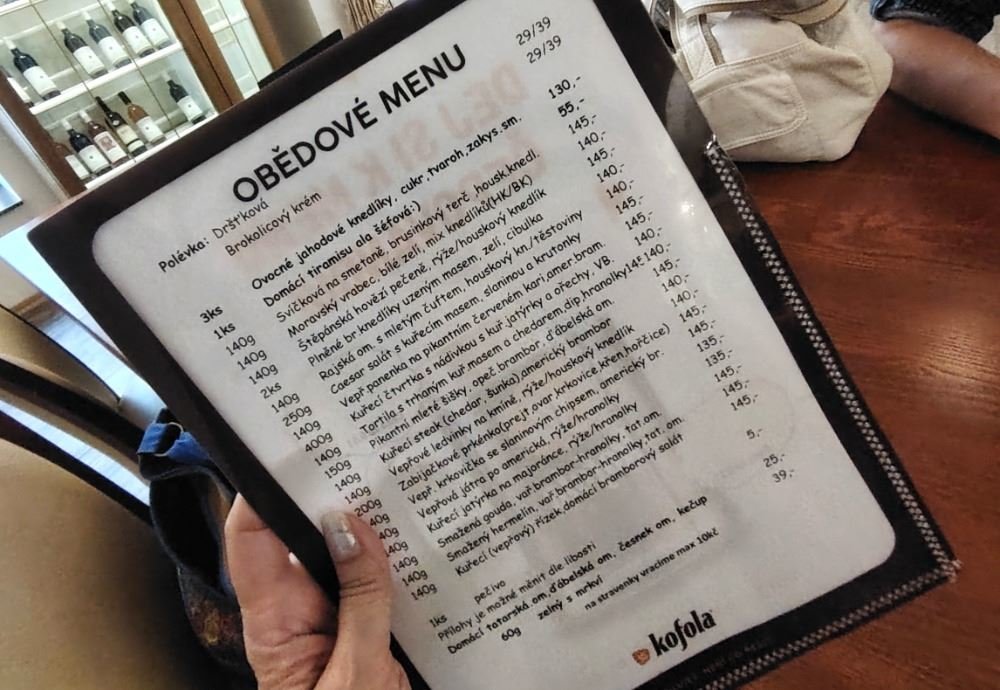 OBĚDOVÉ MENU
Polévka: Držťková 29/39
Brokolicový krém 29/39
3ks Ovocné jahodové knedlíky, cukr, tvaroh, zakys.sm. 130,-
1ks Domácí tiramisu ala šéfová:) 55,-
140g Svíčková na smetaně, brusinkový terč, housk.knedl. 145,-
140g Moravský vrabec, bílé zelí, mix knedlíků(HK/BK) 140,-
140g Štěpánská hovězí pečeně, rýže/houskový knedlík 145,-
2ks Plněné br knedlíky uzeným masem, zelí, cibulka 140,-
140g Rajská om. s mletým čuftem, houskový kn./těstoviny 145,-
250g Caesar salát s kuřecím masem, slaninou a krutonky 140,-
140g Vepř.panenka na pikantním červeném kari,amer.bram. 145,-
400g Kuřecí čtvrtka s nádivkou s kuř.játrky a ořechy, VB. 140,-
150g Tortila s trhaným kuř.masem a chedarem,dip,hranolky 145,-
140g Pikantní mleté šišky, opeč.brambor, ďábelská om. 140,-
200g Kuřecí steak (chedar, šunka),americký brambor 145,-
40g Vepřové ledvinky na kmíně, rýže/houskový knedlík 140,-
Zabijačkové prkénko(prejt,ovar,krkovice,křen,hořčice) 145,-
40g Vepř. krkovička se slaninovým chipsem, americký br. 145,-
140g Vepřová játra po americká, rýže/hranolky 135,-
140g Kuřecí jatýrka na majoránce, rýže/hranolky 135,-
Smažená gouda, vař.brambor-hranolky, tat.om. 145,-
Smažený hermelín, vař.brambor-hranolky,tat. om. 145,-
140g Kuřecí (vepřový) řízek,domácí bramborový salát 145,-
1ks pečivo 5,-
Přílohy je možné měnit dle libosti
Domácí tatarská om,ďábelská om, česnek om, kečup 25,-
60g zelný s mrkví 39,-
na stravenky vracíme max 10kč
kofola